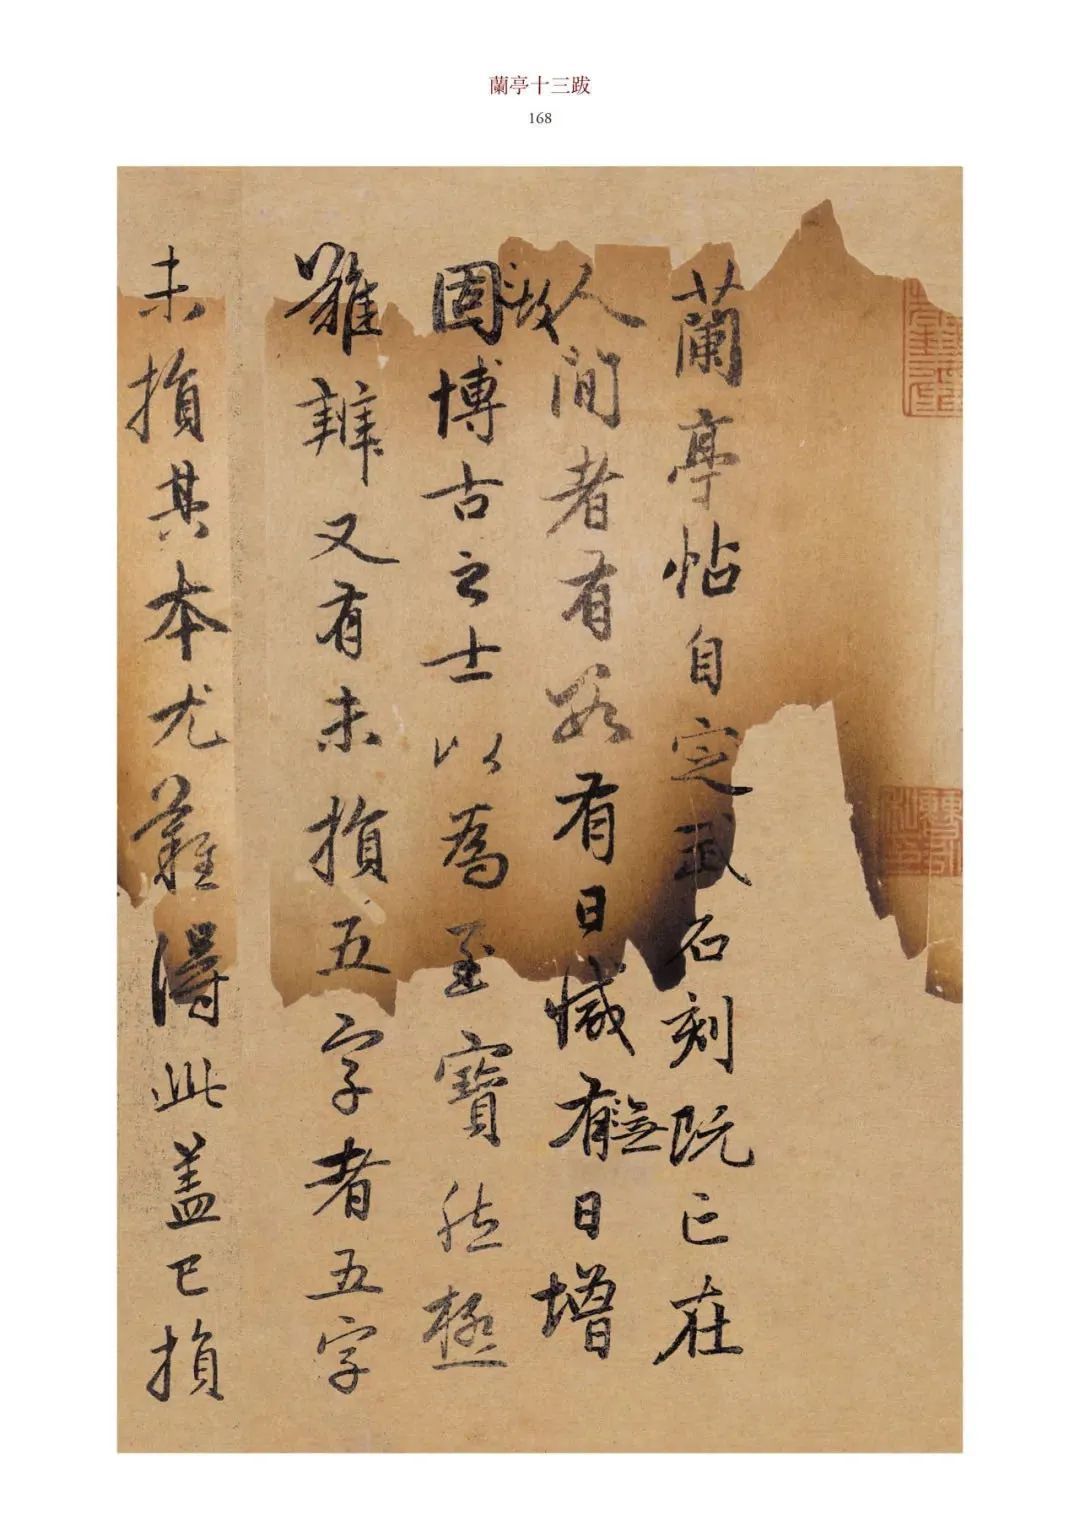 蘭亭十三跋
168
蘭亭帖自定武石刻既亡在
人間者有數有日減有無日增
固故博古之士以為至寶然極
難辨又有未損五字者五字
未損其本尤難得此蓋已損